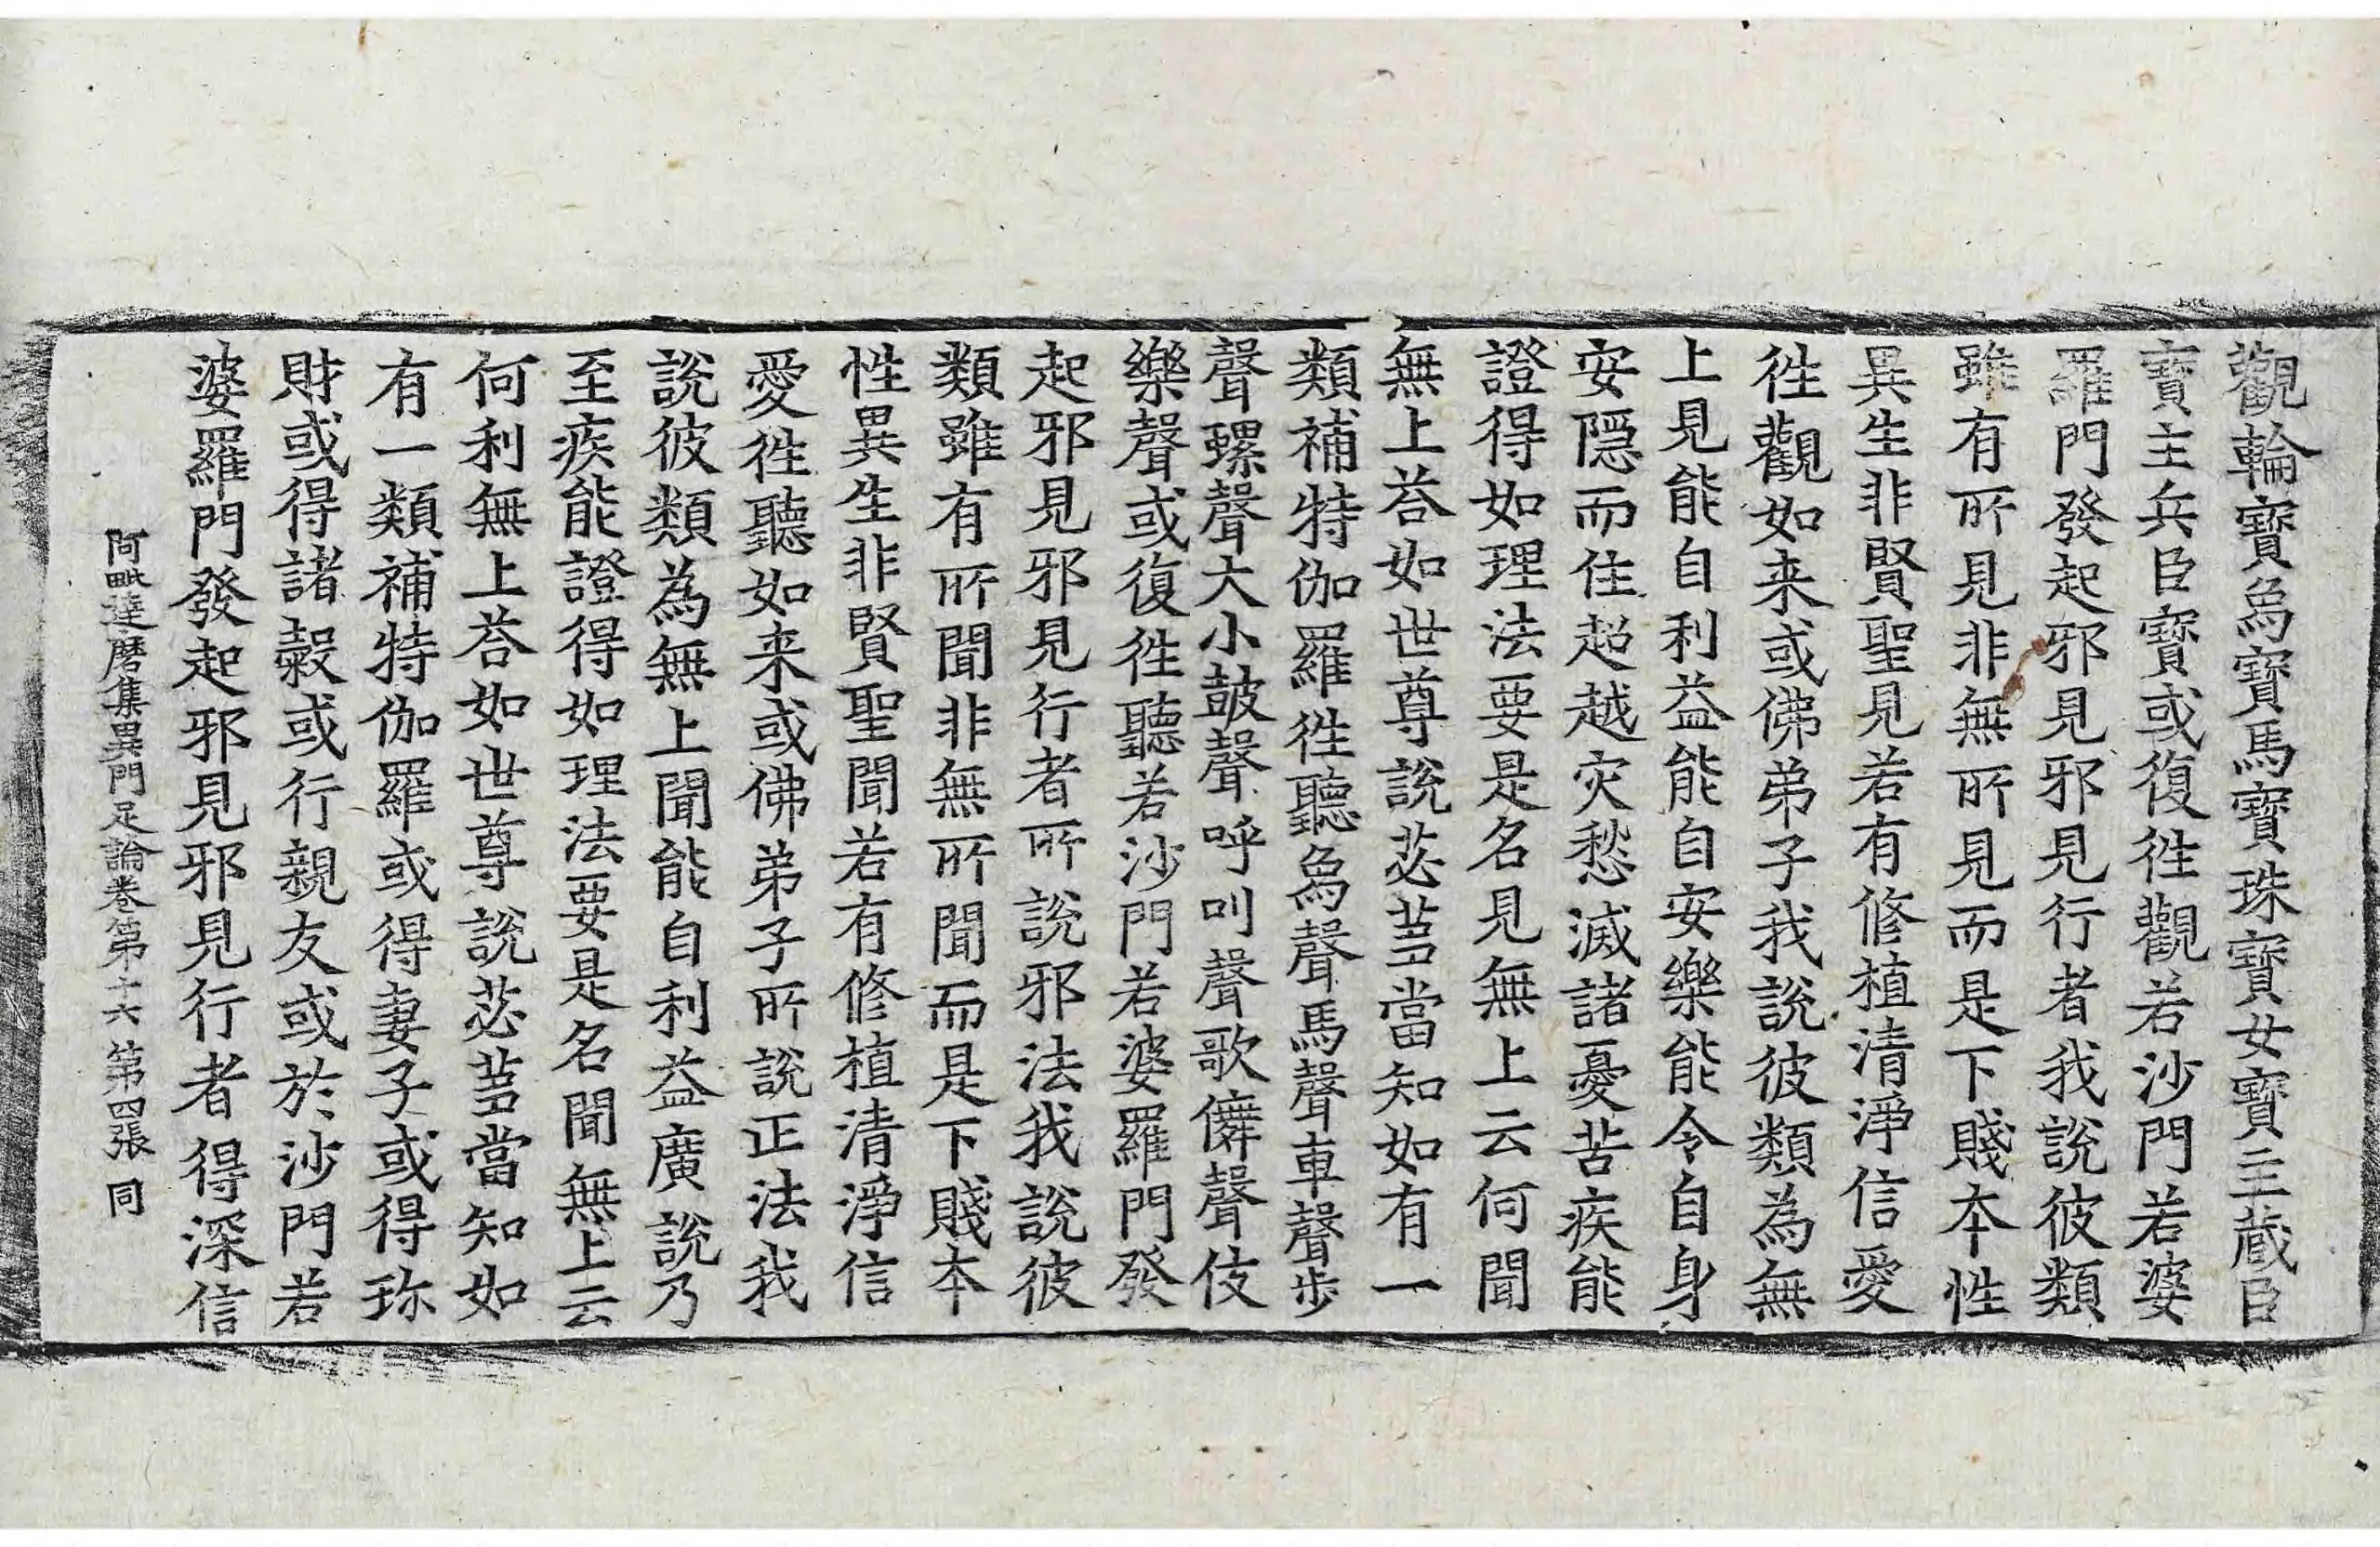 觀輪寶象寶馬寶珠寶女寶主藏臣
寶主兵臣寶或復往觀若沙門若婆
羅門發起邪見邪見行者我說彼類
雖有所見非無所見而是下賤本性
異生非賢聖見若有修植清淨信愛
往觀如来或佛弟子我說彼類為無
上見能自利益能自安樂能令自身
安隱而住超越灾愁滅諸憂苦疾能
證得如理法要是名見無上云何聞
無上荅如世尊說苾芻當知如有一
類補特伽羅往聽象聲馬聲車聲步
聲螺聲大小鼓聲呼叫聲歌儛聲伎
樂聲或復往聽若沙門若婆羅門發
起邪見邪見行者所說邪法我說彼
類雖有所聞非無所聞而是下賤本
性異生非賢聖聞若有修植清淨信
愛往聽如来或佛弟子所說正法我
說彼類為無上聞能自利益廣說乃
至疾能證得如理法要是名聞無上云
何利無上荅如世尊說苾芻當知如
有一類補特伽羅或得妻子或得珎
財或得諸穀或行親友或於沙門若
婆羅門發起邪見邪見行者得深信
阿毗達磨集異門足論卷第十六 第四張 同